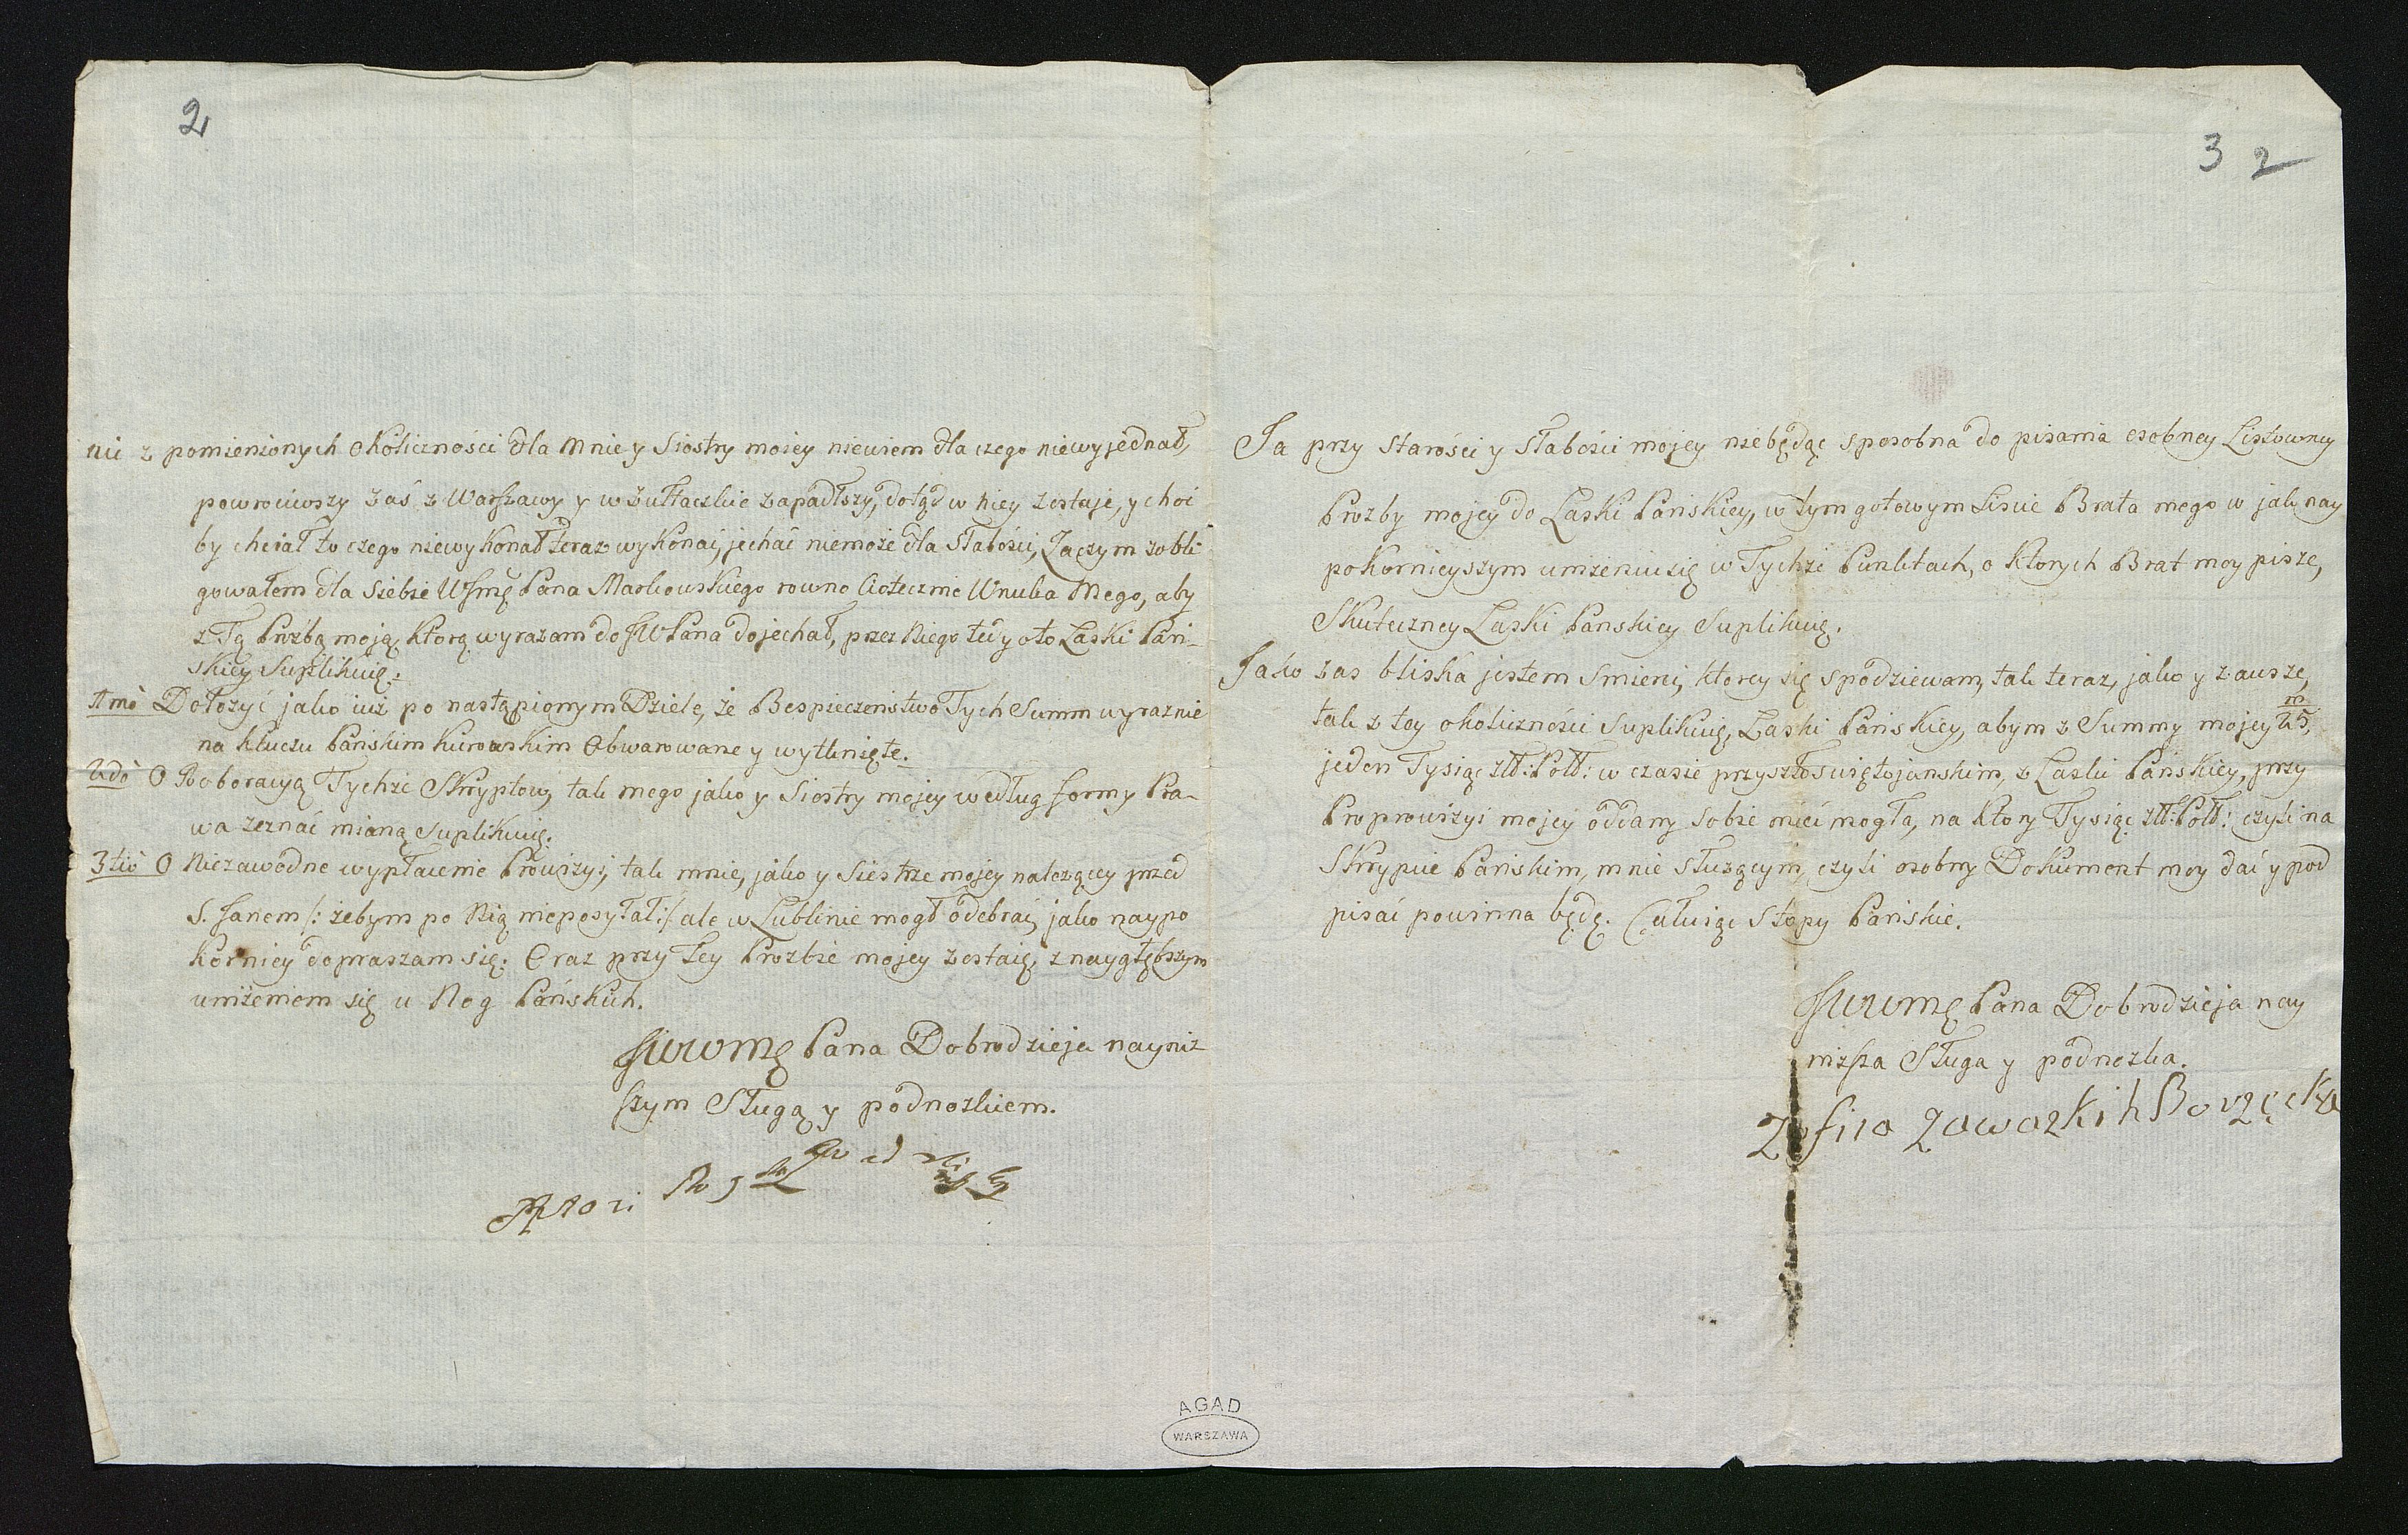 2
nic z pomienionych okoliczności dla mnie y Siostry moiey niewiem dla czego niewyjednał,
powrociwszy zaś z Warszawy y w Zułtaczkie zapadłszy, dotąd w niey zostaje, y choć
by chciał to czego niewykonał teraz wykonać, jechać niemoże dla słabości, Zaczym zobli
gowałem dla siebie WJmę Pana Markowskiego rowno Ciotecznie Wnuka Mego, aby
z Tą Prożbą moją, ktorą wyrazam do JWPana dojechał, przez Niego tedy oto Laski Pań-
skiey Suplikuię.
1mo Dołozyć jako iuż po nastąpionym Dziele, że Bespieczeństwo Tych Summ wyraznie
na kluczu Pańskim Kurowskim Obwarowane y wytknięte.
2do O Roboracyą Tychże Skryptow, tak mego jako y Siostry mojey według formy Pra-
wa zeznać mianą Suplikuię.
3tio O Niezawodne wypłacenie Prowizyi, tak mnie, jako y Siestrze mojey nalezącey przed
S. Janem /: żebym po Nią nieposyłał :/ ale w Lublinie mogł odebrać, jako naypo
korniey dopraszam się. Oraz przy Tey Prozbie mojey zostaię, z naygłębszym
uniżeniem się u Nog Pańskich.
JWWmę Pana Dobrodzieja nayniż
szym Sługą y podnozkiem.
3 2
Ja przy Starości y Słabości mojey niebędąc sposobna do pisania osobney Listowney
Prozby mojey do Laski Pańskiey, w tym gotowym Liscie Brata mego w jak nay
pokornieyszym uniżeniu się w Tychże Punktach, o ktorych Brat moy pisze,
Skuteczney Laski Panskiey Suplikuię.
Jako zas bliska jestem Smierci, ktorey się spodziewam, tak teraz, jako y zausze,
tak z tey okoliczności Suplikuię, Laski Pańskiey, abym z Summy mojey m/25,
jeden Tysiąc złł: Poll: w czasie przyszłoswiętojanskim, z Laski Pańskiey, przy
Proprowizyi mojey oddany sobie mieć mogła, na ktory Tysiąc złł: Poll: czyli na
Skrypcie Pańskim, mnie słuzącym, czyli osobny Dokument moy dać y pod
pisać powinna będę. Całuiąc Stopy Pańskie.
JWWmę Pana Dobrodzieja nay
niższa Sługa y podnozka.
Zofiia Zawazkih Borzęcka
AGAD
WARSZAWA